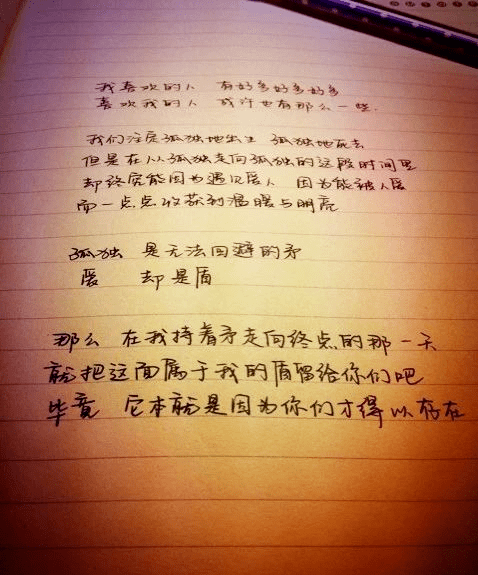 我喜欢的人 有好多好多好多
喜欢我的人 或许也有那么一些.
我们注定孤独地出生 孤独地死去
但是在从孤独走向孤独的这段时间里
却终究能因为遇见爱人 因为能被人爱
而一点点收获到温暖与明亮
孤独 是无法回避的矛
爱 却是盾
那么 在我持着矛走向终点的那一天
就把这面属于我的盾留给你们吧
毕竟 它本就是因为你们才得以存在